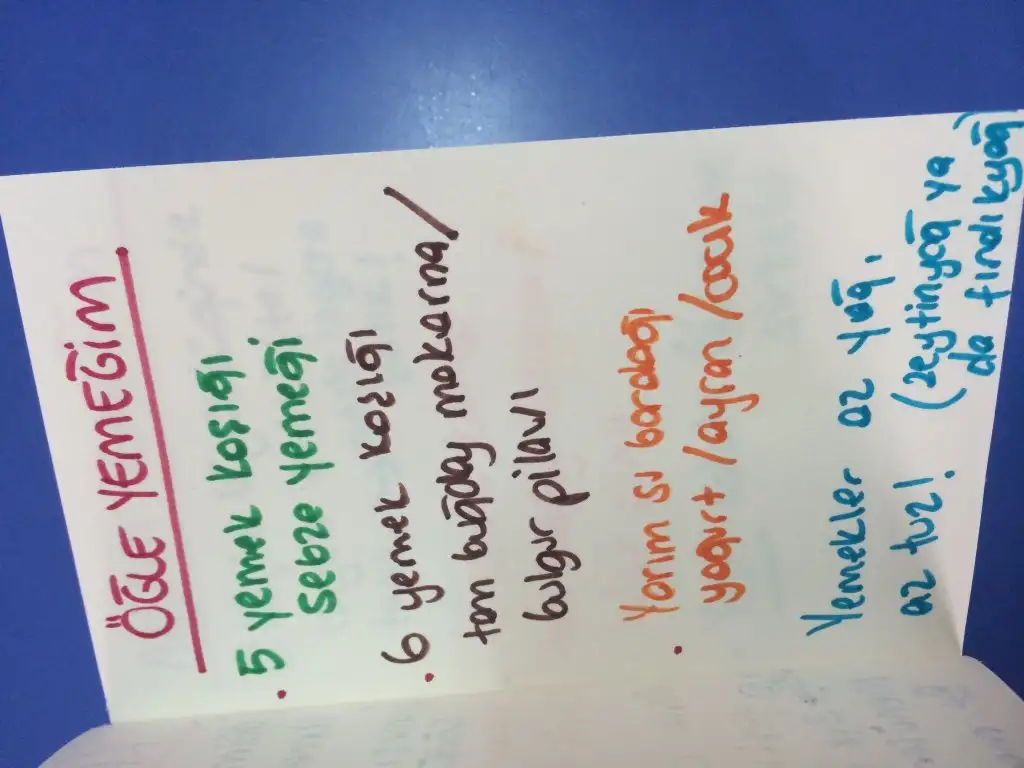 ÖĞLE YEMEĞİM
. 5 yemek kaşığı
sebze yemeği
. 6 yemek kaşığı
tam buğday makarna/
bulgur pilavı
. Yarım su bardağı
yoğurt /ayran /cacık
Yemekler az yağ,
az tuz! (zeytinyağ ya
da fındıkyağ)